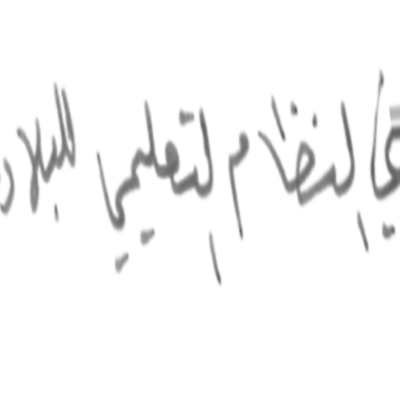 النظام التعليمي للبلاد